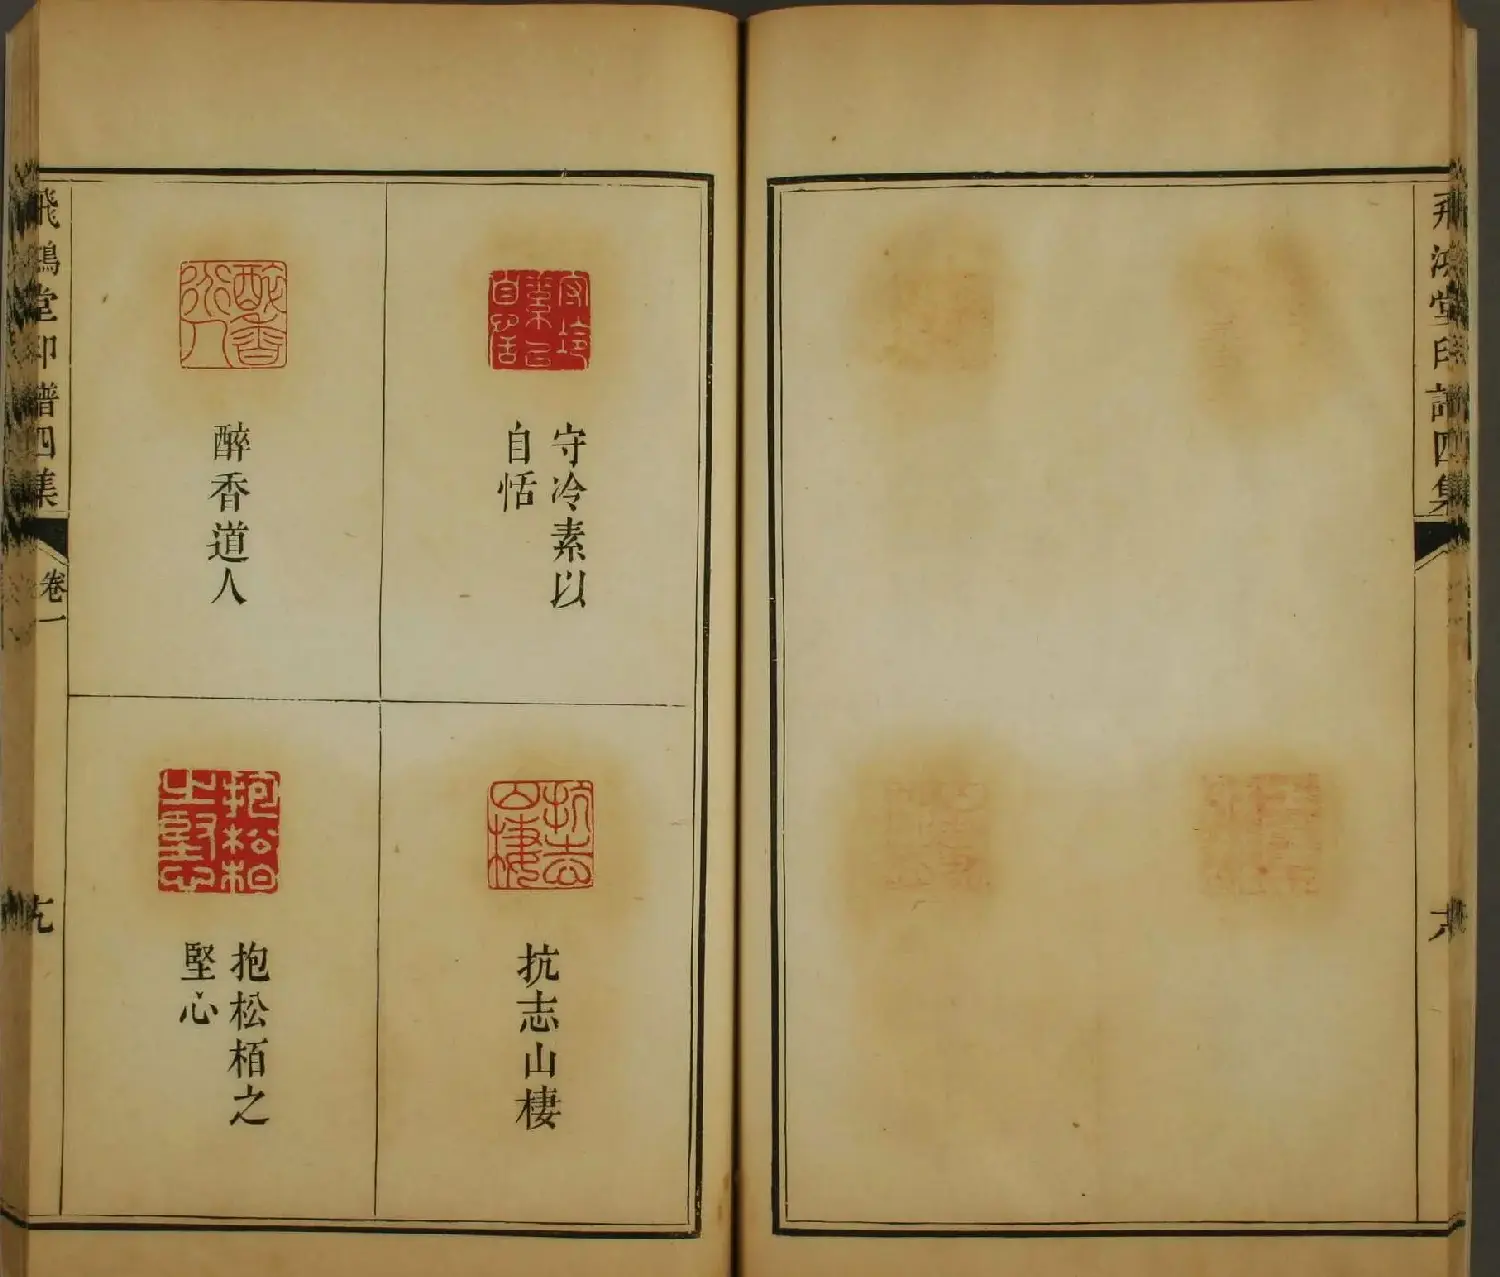 飛鴻堂印譜四集
六
守冷素以
自恬
抗志山棲
醉香道人
抱松栢之
堅心
飛鴻堂印譜四集
卷一
七